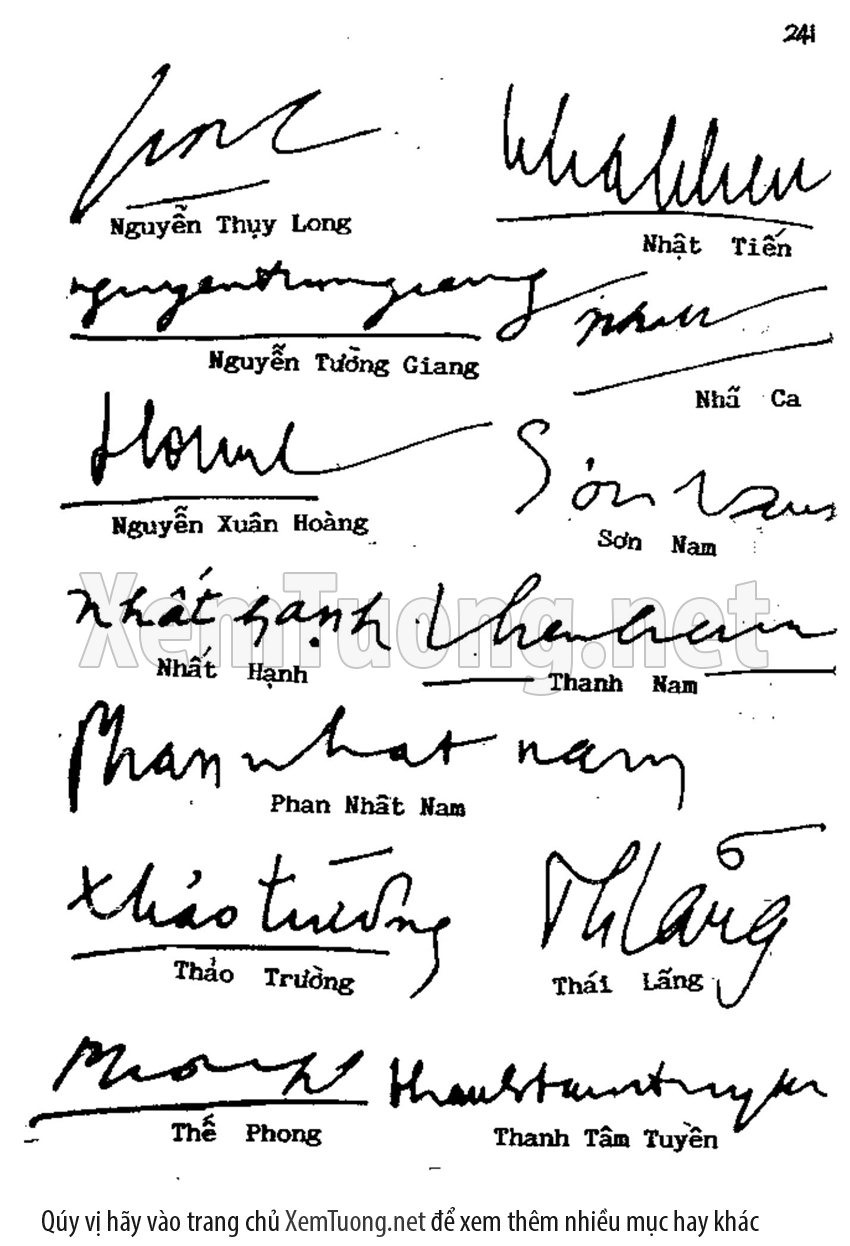 241
Nguyễn Thụy Long
Nhật Tiến
nguyentuonggiang
Nguyễn Tường Giang
Nhã Ca
Nguyễn Xuân Hoàng
Sơn Nam
Sơn Nam
nhất hạnh
XemTuong.net
Nhất Hạnh
Thanh Nam
Phan nhat nam
Phan Nhât Nam
thảo trường
Thảo Trường
Thái Lãng
Thế Phong
Thanh Tâm Tuyền
Qúy vị hãy vào trang chủ XemTuong.net để xem thêm nhiều mục hay khác